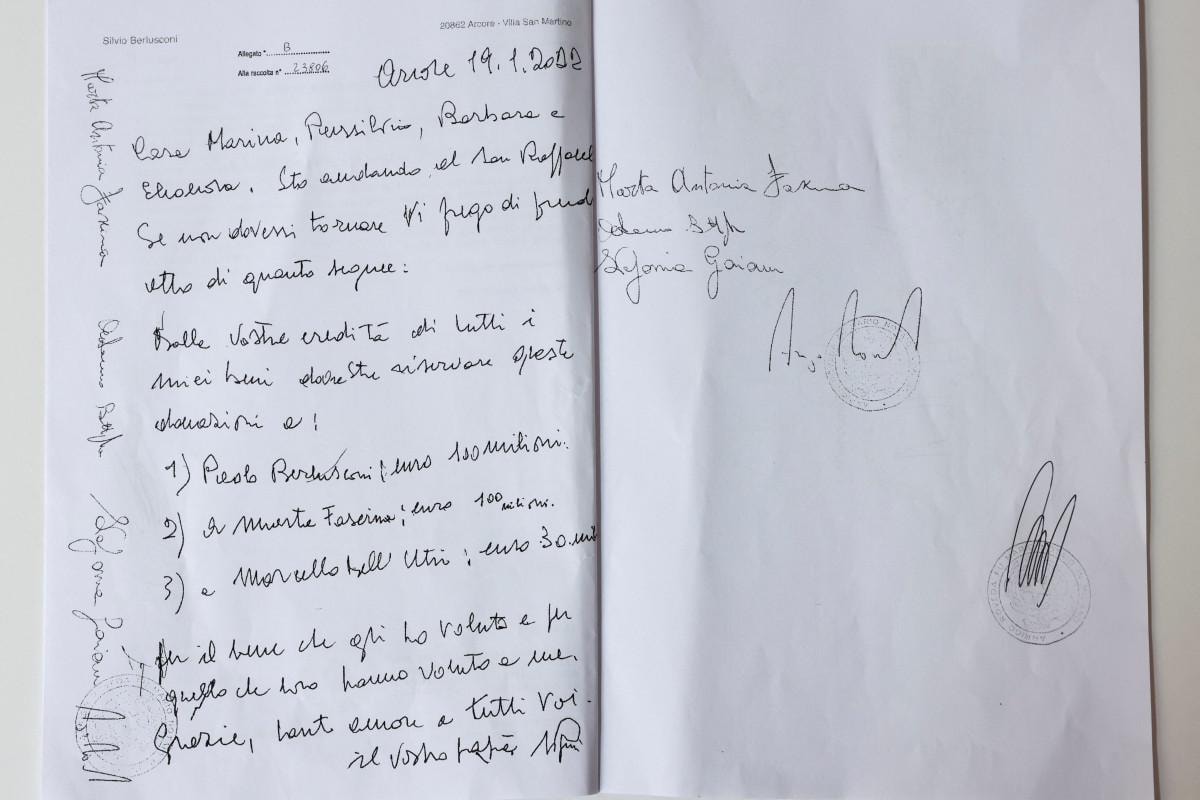 Silvio Berlusconi
20862 Arcore - Villa San Martino
Allegato " B
Alla raccolta n° 23806
Arcore 19.1.2022
Cara Marina, Piersilvio, Barbara e
Eleonora, Sto andando al San Raffael
Se non dovessi tornare Vi prego di prend
atto di quanto segue:
Dalla Vostra eredità di tutti i
miei beni dovreste riservare queste
donazioni a:
1) Paolo Berlusconi; euro 100 milioni.
2) a Marta Fascina; euro 100 milioni.
3) a Marcello Dell'Utri; euro 30 mil
per il bene che gli ho voluto e per
quello che loro hanno voluto a me.
Grazie, tanto amore a tutti voi.
il Vostro papà
Marta Antonia Fascina
Stefania Gaiani
Marta Antonia Fascina
Stefania Gaiani